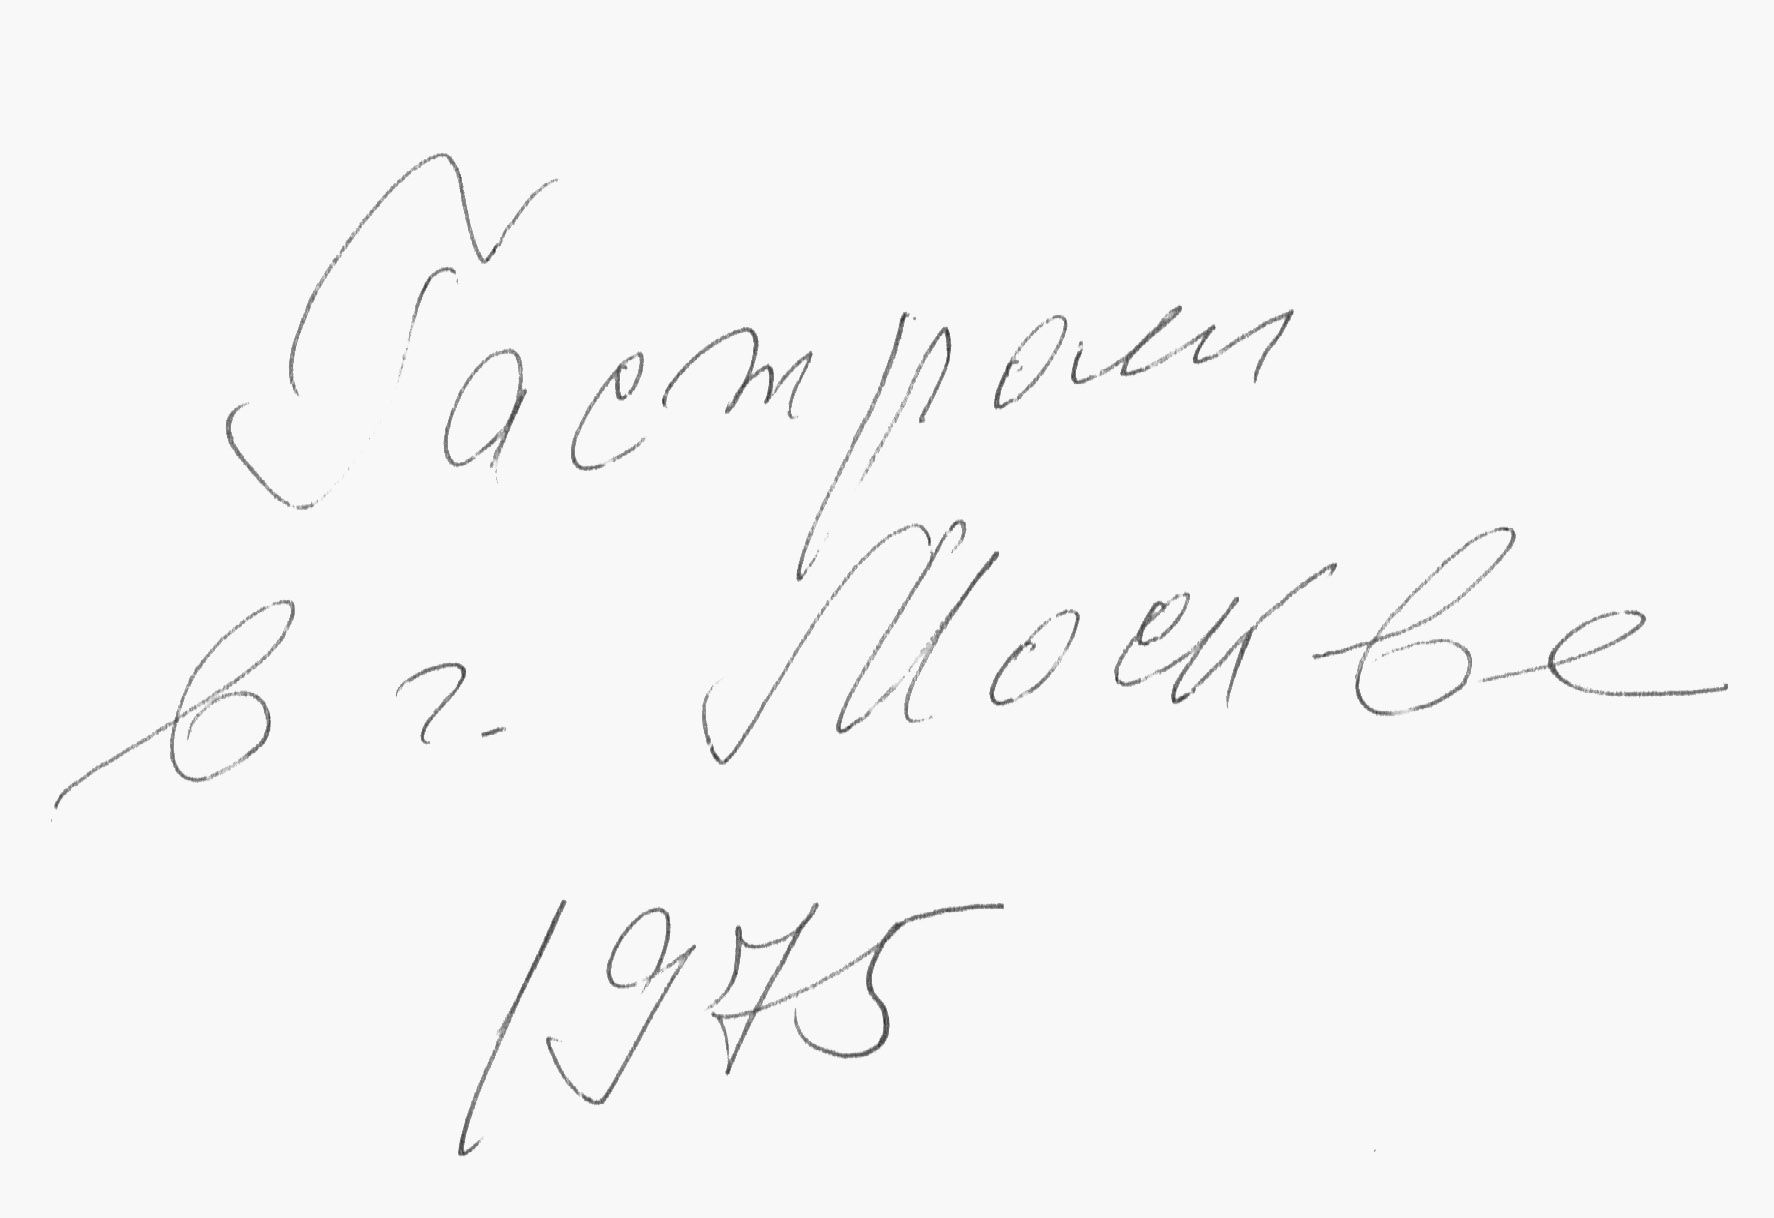 Гастроли
в г. Москве
1975